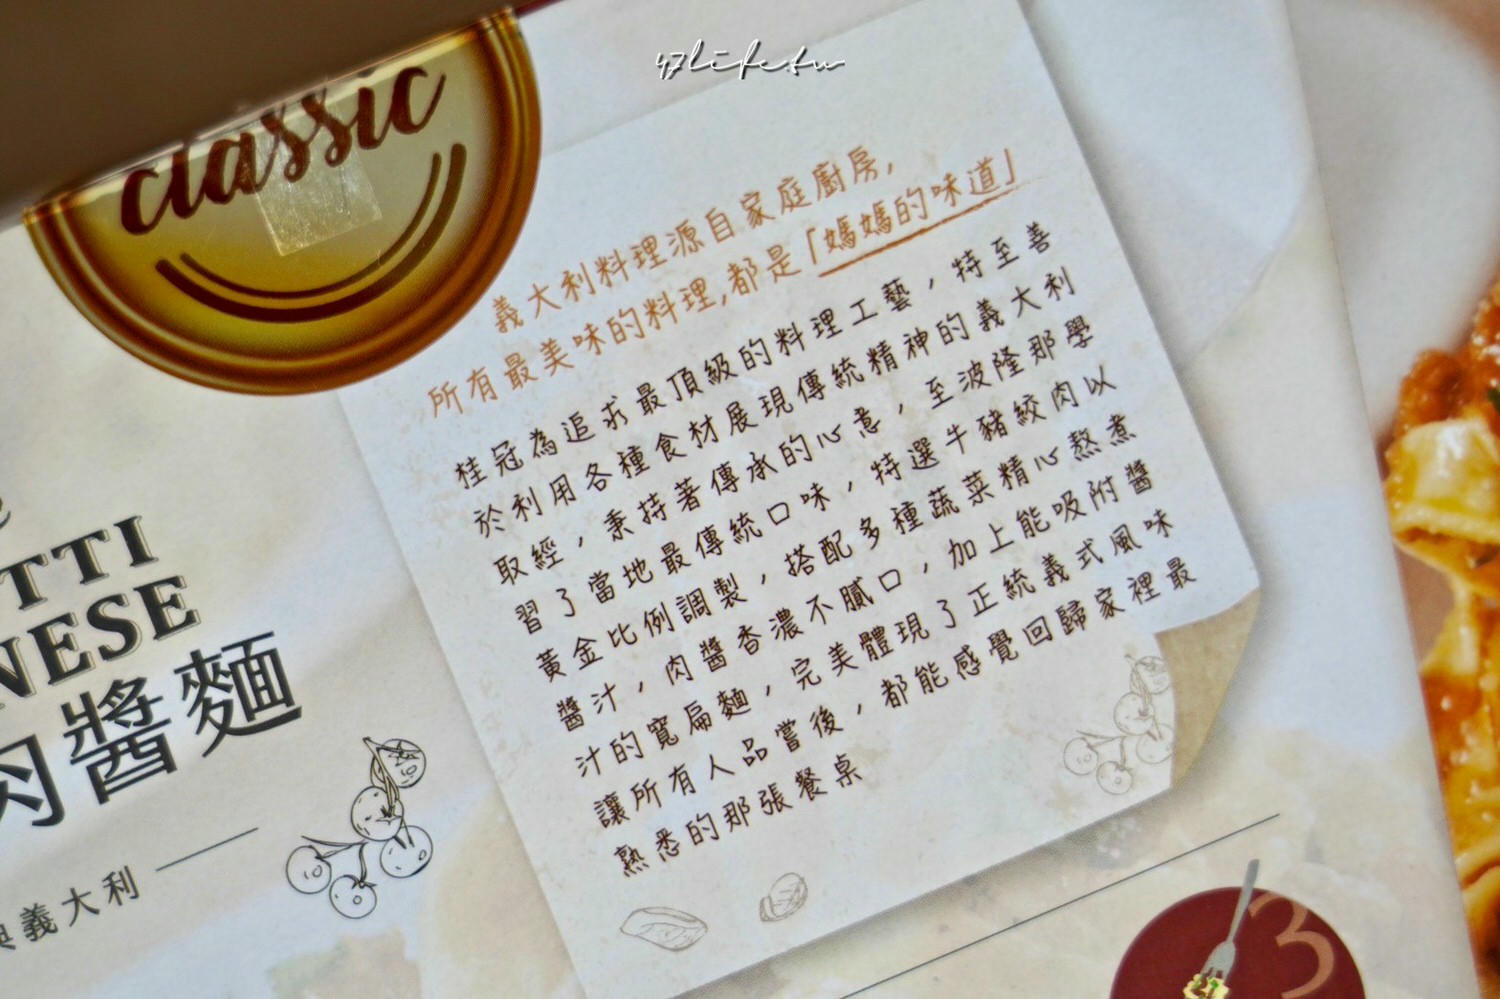 47life.tw
classic
義大利料理源自家庭廚房,
所有最美味的料理,都是「媽媽的味道」
桂冠為追求最頂級的料理工藝，特至善
於利用各種食材展現傳統精神的義大利
取經，秉持著傳承的心意，至波隆那學
習了當地最傳統口味，特選牛豬絞肉以
黃金比例調製，搭配多種蔬菜精心熬煮
醬汁，肉醬香濃不膩口，加上能吸附醬
汁的寬扁麵，完美體現了正統義式風味
讓所有人品嘗後，都能感覺回歸家裡最
熟悉的那張餐桌
TTI
NESE
肉醬麵
義大利
3